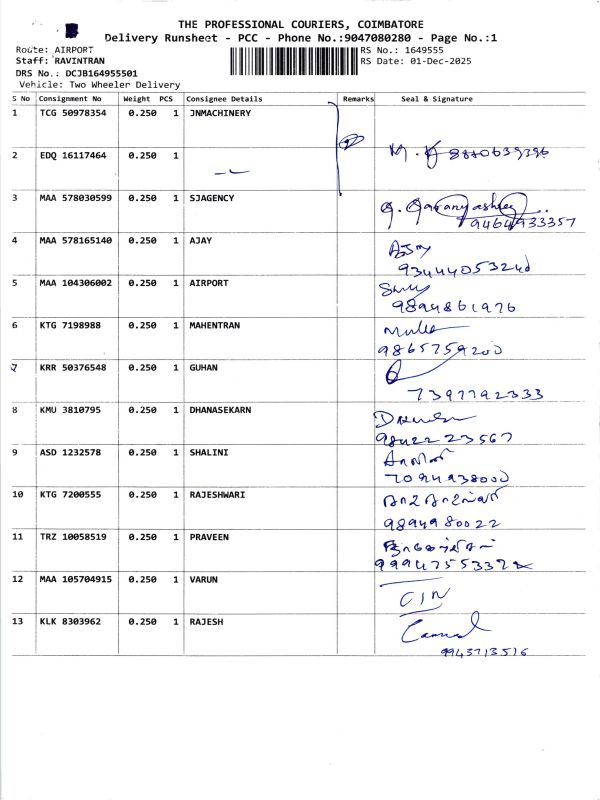 THE PROFESSIONAL COURIERS, COIMBATORE
Delivery Runsheet - PCC - Phone No.:9047080280 - Page No.:1
Route: AIRPORT RS No.: 1649555
Staff: RAVINTRAN RS Date: 01-Dec-2025
DRS No.: DCJB164955501
Vehicle: Two Wheeler Delivery
S No Consignment No Weight PCS Consignee Details Remarks Seal & Signature
1 TCG 50978354 0.250 1 JNMACHINERY
2 EDQ 16117464 0.250 1
3 MAA 578030599 0.250 1 SJAGENCY
9464933357
4 MAA 578165140 0.250 1 AJAY Ajay
9344405324d
5 MAA 104306002 0.250 1 AIRPORT
9894861976
6 KTG 7198988 0.250 1 MAHENTRAN
9865759200
7 KRR 50376548 0.250 1 GUHAN
7397792333
8 KMU 3810795 0.250 1 DHANASEKARN
9842223567
9 ASD 1232578 0.250 1 SHALINI
7094938000
10 KTG 7200555 0.250 1 RAJESHWARI
9894980022
11 TRZ 10058519 0.250 1 PRAVEEN
12 MAA 105704915 0.250 1 VARUN
CIN
13 KLK 8303962 0.250 1 RAJESH
9943713516